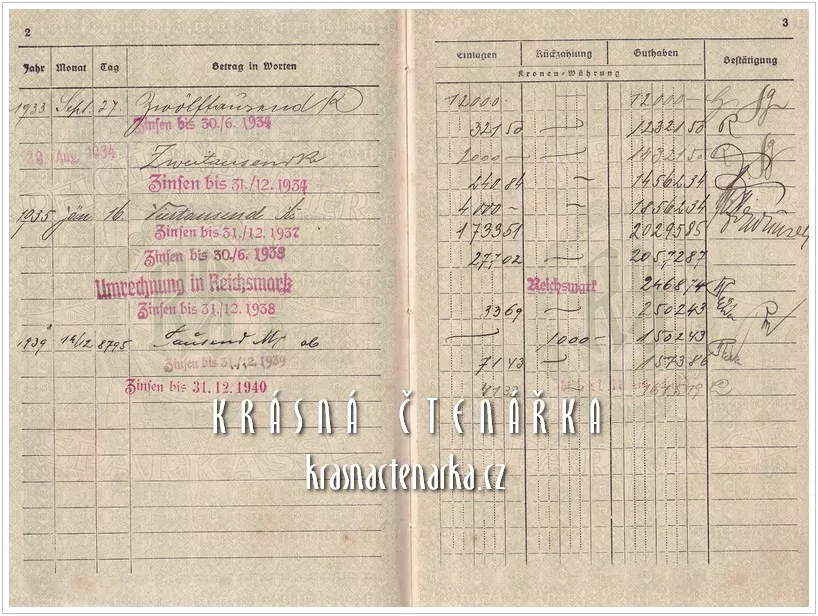 2
Jahr Monat Tag Betrag in Worten
1933 Sept. 27. Zwölftausend K
Zinsen bis 30./6. 1934
29. Aug. 1934 Zweitausend K
Zinsen bis 31./12. 1934
1935 Jän. 16. Viertausend K
Zinsen bis 31./12. 1937
Zinsen bis 30./6. 1938
Umrechnung in Reichsmark
Zinsen bis 31./12. 1938
1939 14/12 8795 Tausend M ab
Zinsen bis 31./12. 1939
Zinsen bis 31. 12. 1940
3
Einlagen Rückzahlung Guthaben Bestätigung
Kronen-Währung
12000 — 12000 —
321 50 — 12321 50
2000 — — 14321 50
240 84 — 14562 34
4000 — — 18562 34
1733 51 — 20295 85
277 02 — 20572 87
Reichsmark 2468 74
33 69 — 2502 43
— 1000 — 1502 43
71 43 — 1573 86
KRÁSNÁ ČTENÁŘKA
krasnactenarka.cz